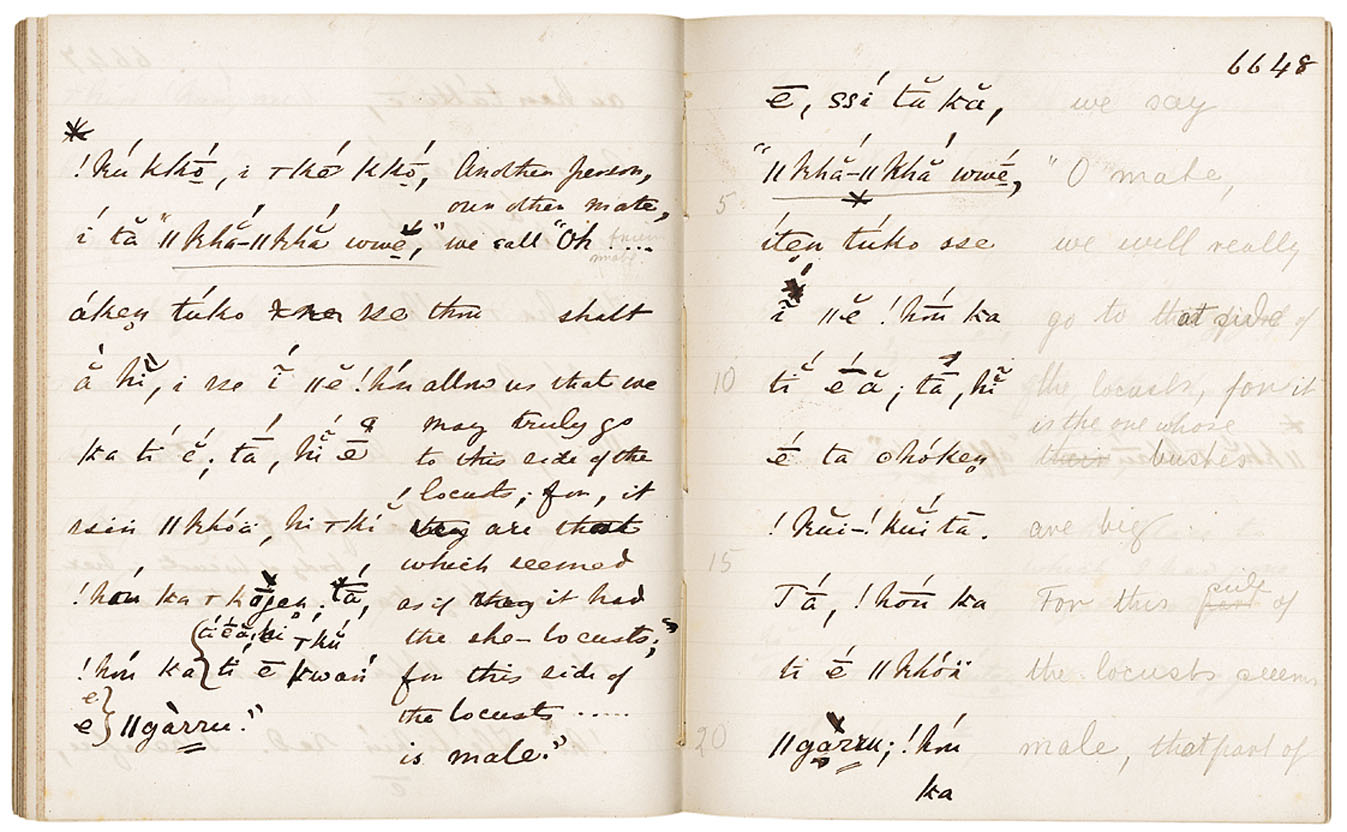 *
!kú kkṓ̱, i ⊤ké kkṓ̱, Another person,
our other mate,
í tă "||khắ-||khắ wwē̱," we call "Oh ....
mate
áken̥ túko se thou shalt
ắ hĭ̋, i se ī́ ||ĕ́ !hóu allow us that we
may truly go
ka tí ĕ́; tā́, hĭ̋ ē̆ to this side of the
locusts; for, it
ssin ||khóä, hi ⊤kĭ́ they are that
which seemed
!hóu ka ⊤khŏ̄gen̥; tā́, as if they it had
tí ĕ́ ă, hi ⊤kŭ́ the she-locusts;
!hóu ka { ti ē kwaṅ for this side of
e } ||gàrru." the locusts .....
is male."
6648
ē, ssí tă kă, we say
"||khắ-||khắ wwḗ̱, "O mate,
*
5
íten̥ túko sse we will really
ī̆́ ||ĕ !hṓu ka go to that side of
10 tĭ́ ĕ́ ă; tā́, hĭ̋ the locusts, for it
is the one whose
é ta ohóken̥ their bushes
!kŭ́i-!kŭ́ita. are big
15
Tā́, !hṓu ka For this part side of
ti é ||khóä the locusts seems
20 ||gàrru; !hóu male, that part of
ka